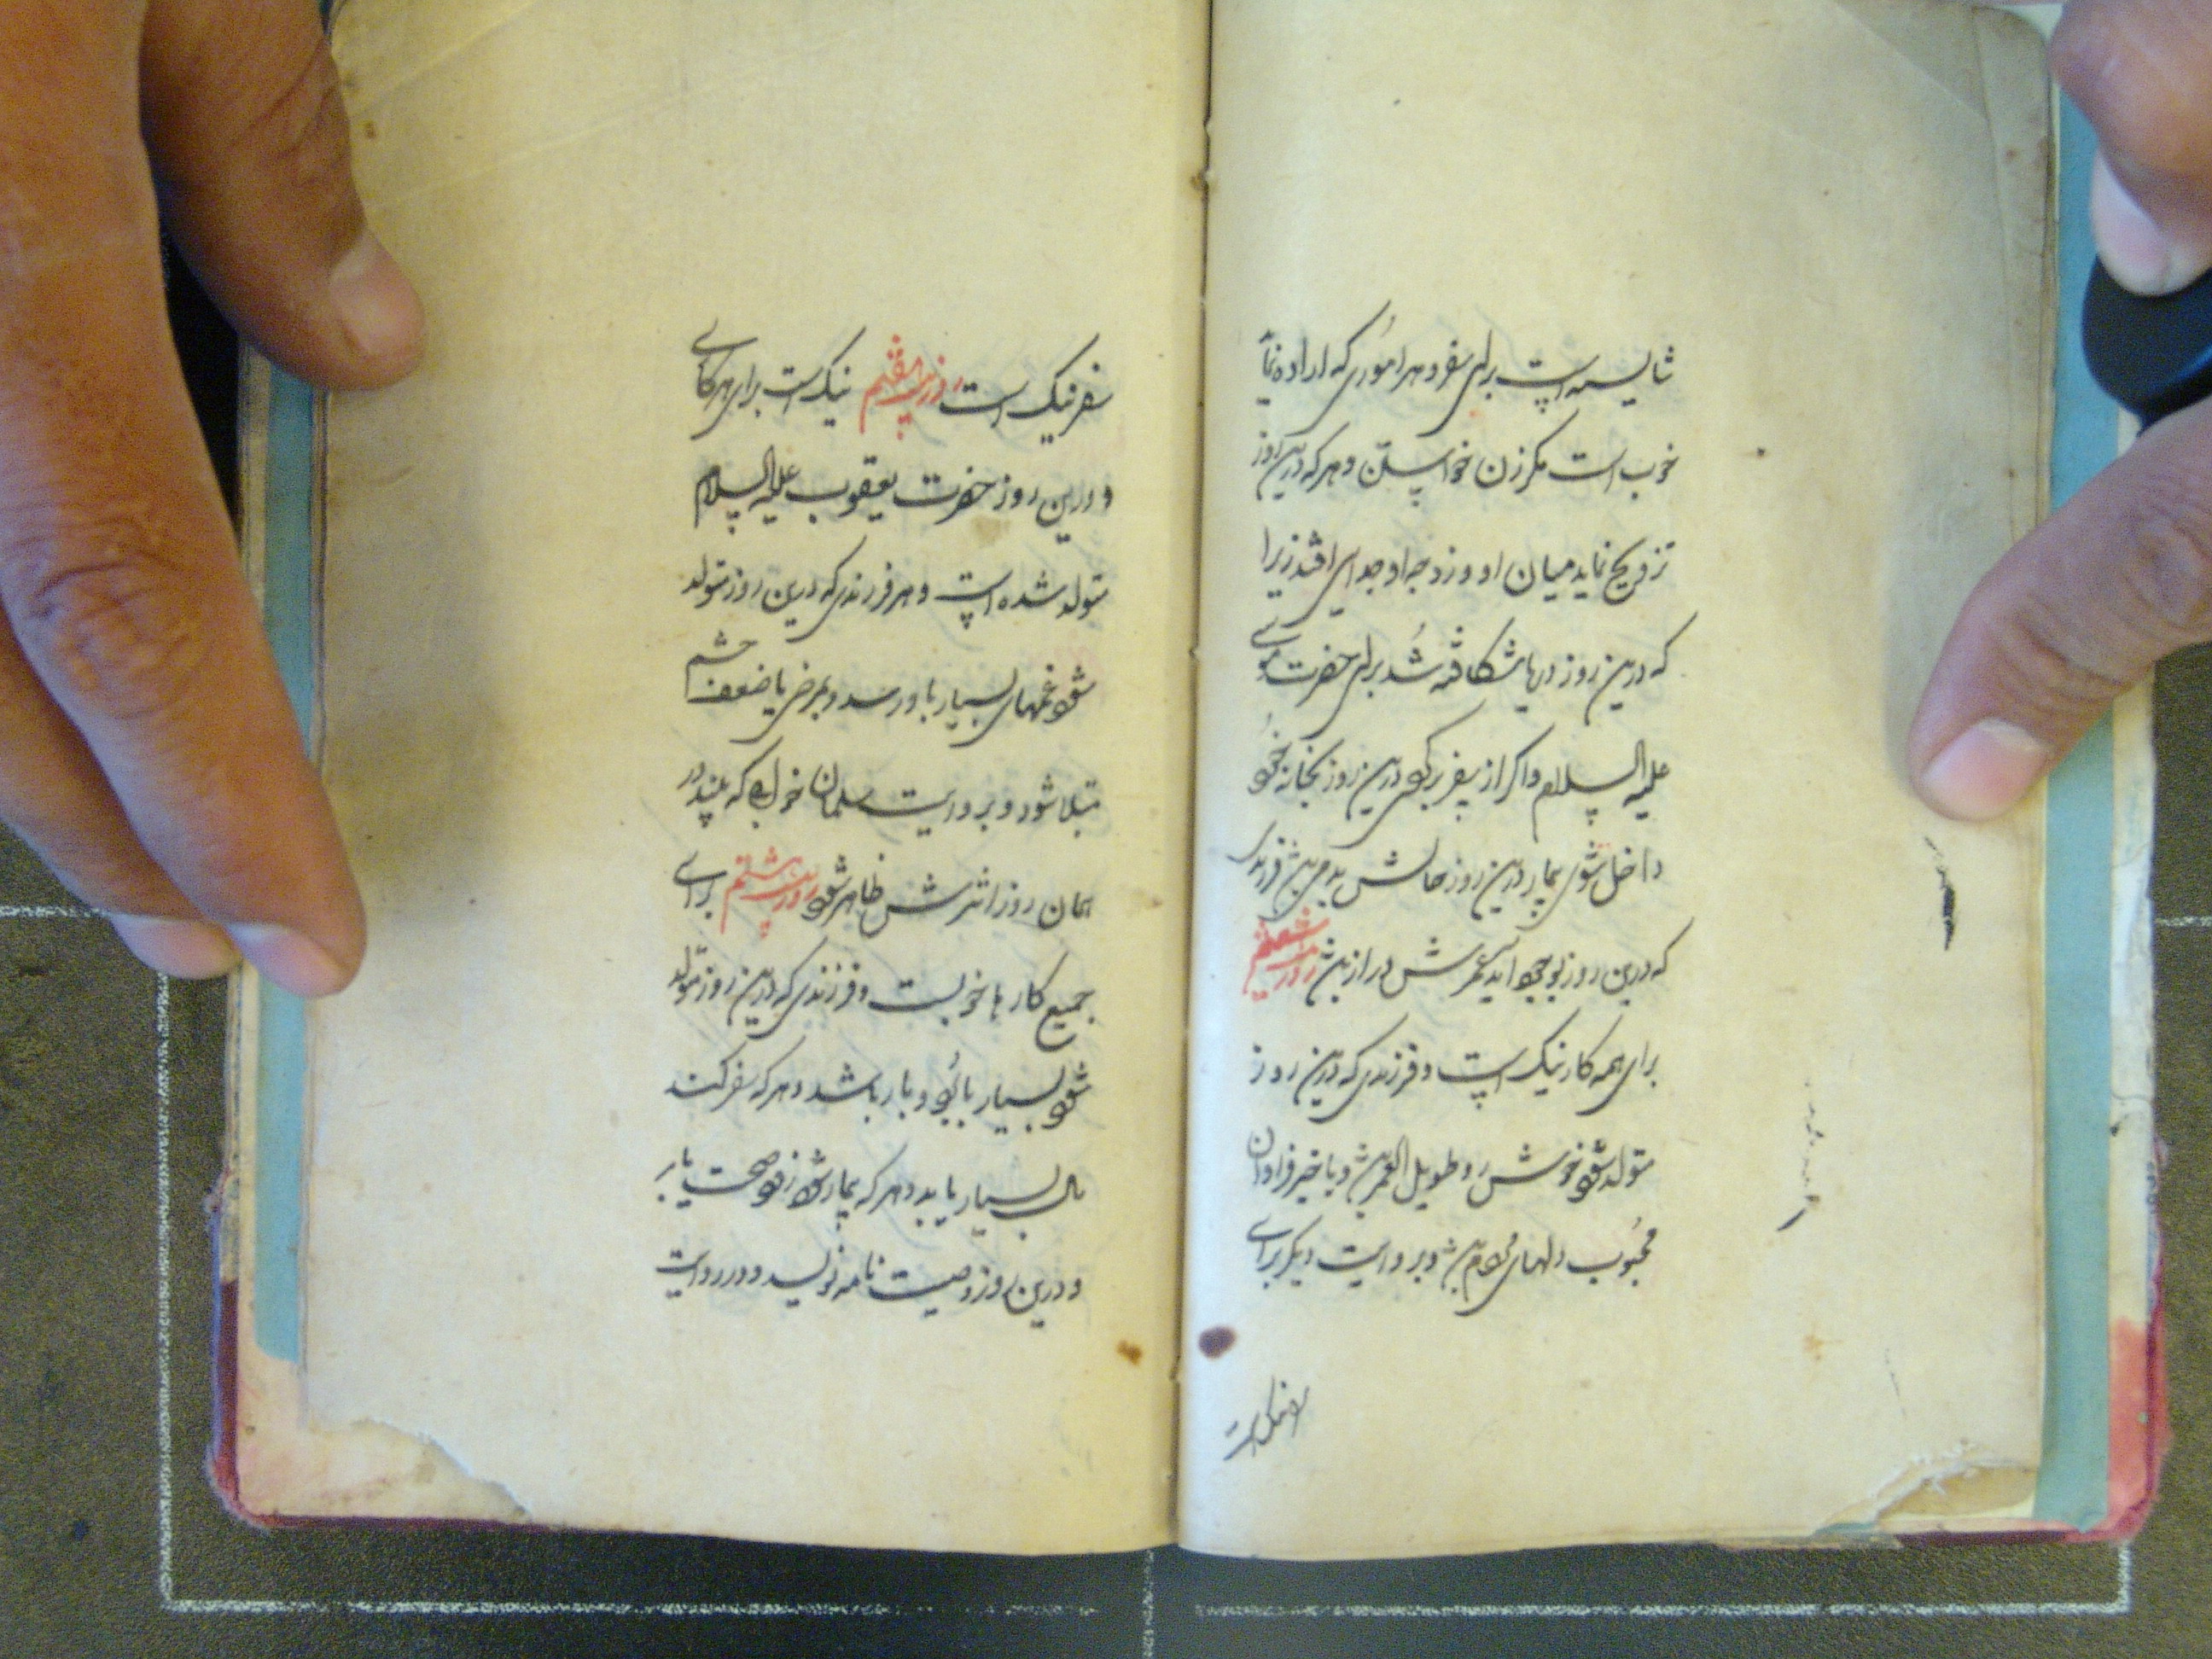 شایسته است برای سفر و هر اموری که اراده نماید
خوب است مگر زن خواستن و هر که درین روز
تزویج نماید میان او و زوجه او جدایی افتد زیرا
که درین روز دریا شکافته شد برای حضرت موسی
علیه السلام و اگر از سفر برگردی درین روز بخانه خود
داخل شوی بیمار درین روز حالش بد می باشد فرزندی
که درین روز بوجود آید عمرش دراز باشد روز بیست ششم
برای همه کار نیک است و فرزندی که درین روز
متولد شود خوش رو و طویل العمر باشد و با خیر فراوان
محبوب دلهای مردم باشد و بروایت دیگر برای
سفر نیک است
سفر نیک است روز بیست هفتم نیک است برای هر کاری
و درین روز حضرت یعقوب علیه السلام
متولد شده است و هر فرزندی که درین روز متولد
شود غمهای بسیار باو رسد و بمرض یا ضعف چشم
مبتلا شود و بروایت سلمان خوابی که بیند در
همان روز اثرش ظاهر شود روز بیست هشتم برای
جمیع کارها خوبست و فرزندی که درین روز متولد
شود بسیار باشد و هر که سفر کند
مال بسیار یابد و هر که بیمار شود زود صحت یابد
و درین روز وصیت نامه نویسد و در روایت